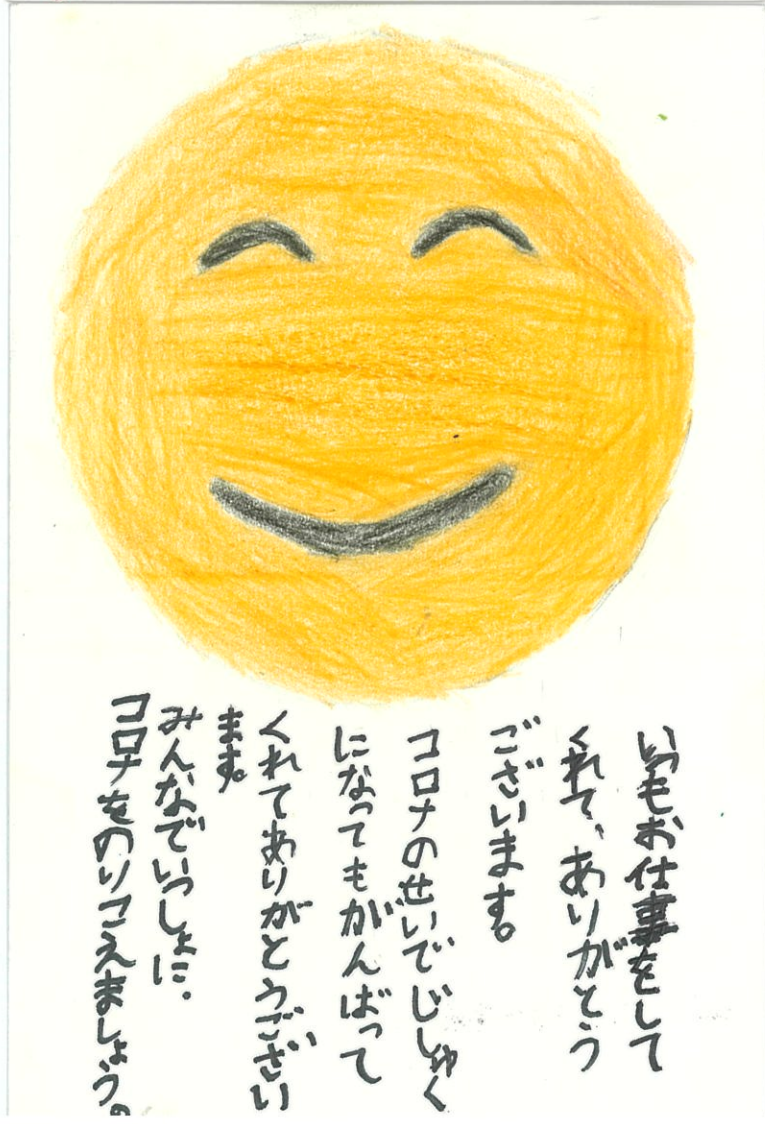 いつもお仕事をして
くれて、ありがとう
ございます。
コロナのせいでじしゅく
になってもがんばって
くれてありがとうござい
ます。
みんなでいっしょに.
コロナをのりこえましょう。